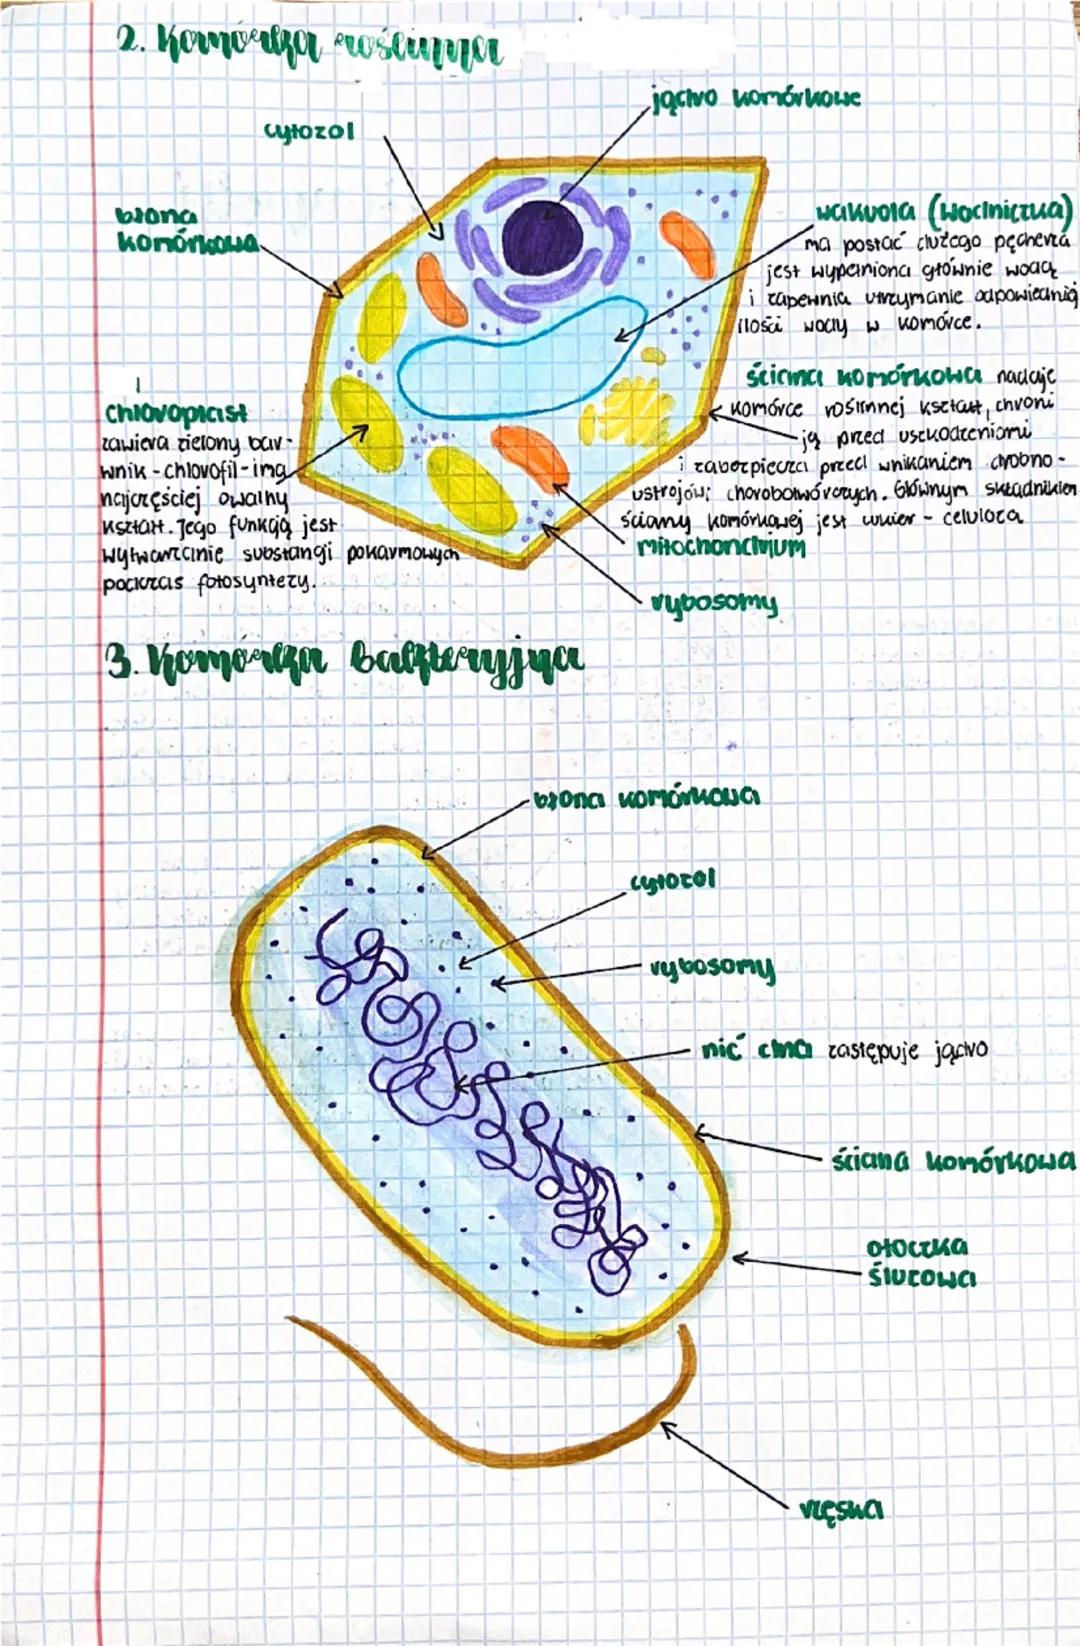 2. Komórka roślinna
jądro komórkowe
cytozol
błona
komórkowa
wakuola (wodniczka)
ma postać dużego pęcherza
jest wypełniona głównie wodą
i zapewnia utrzymanie odpowiednią
ilości wody w komórce.
ściana komórkowa nadaje
komórce roślinnej kształt, chroni
ją przed uszkodzeniami
i zabezpiecza przed wnikaniem drobno-
ustrojów chorobotwórczych. Głównym składnikiem
ściany komórkowej jest cukier - celuloza
chloroplast
zawiera zielony bar-
wnik - chlorofil - i ma
najczęściej owalny
kształt. Jego funkcją jest
wytwarzanie substancji pokarmowych
podczas fotosyntezy.
mitochondrium
rybosomy
3. Komórka bakteryjna
błona komórkowa
cytozol
rybosomy
nić dna zastępuje jądro
ściana komórkowa
otoczka
śluzowa
rzęska